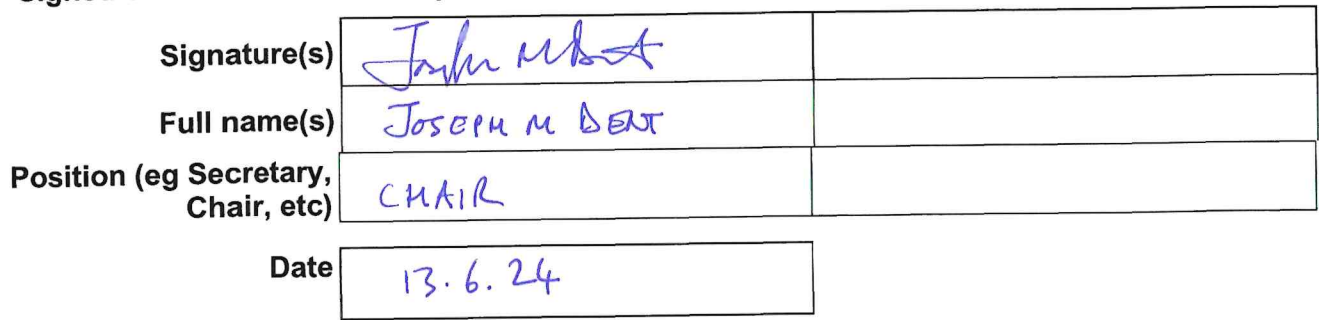 Signature(s) Joseph M Dent
Full name(s) JOSEPH M DENT
Position (eg Secretary,
Chair, etc) CHAIR
Date 13.6.24